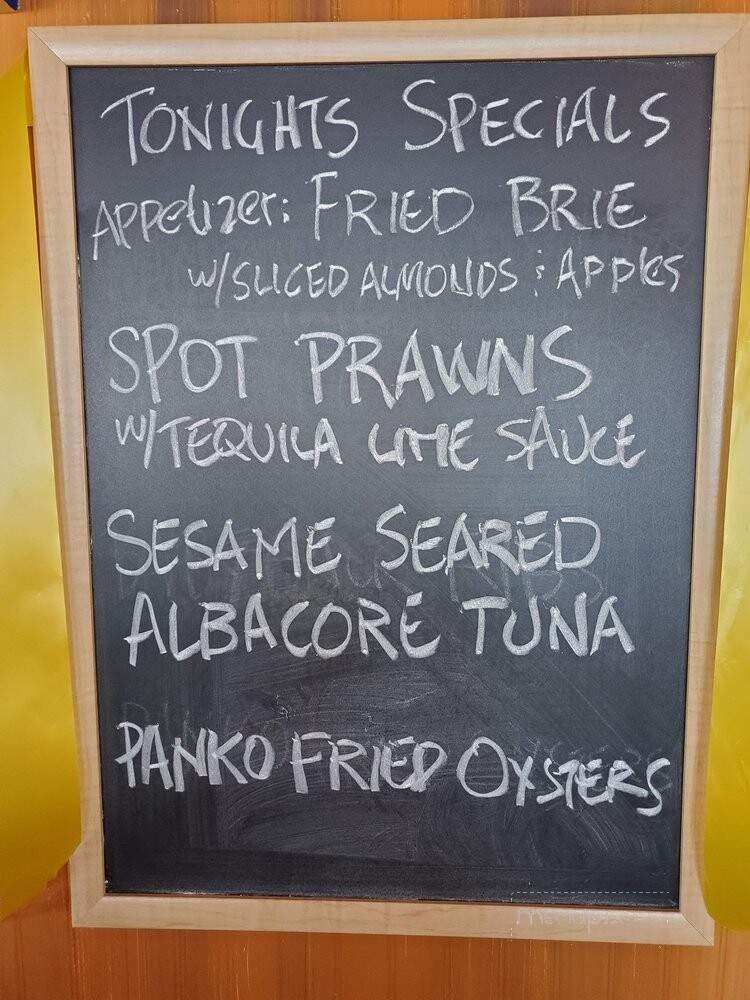 TONIGHTS SPECIALS
Appetizer: FRIED BRIE
W/SLICED ALMONDS & APPles
SPOT PRAWNS
W/TEQUILA LIME SAUCE
SESAME SEARED
ALBACORE TUNA
PANKO FRIED OYSTERS